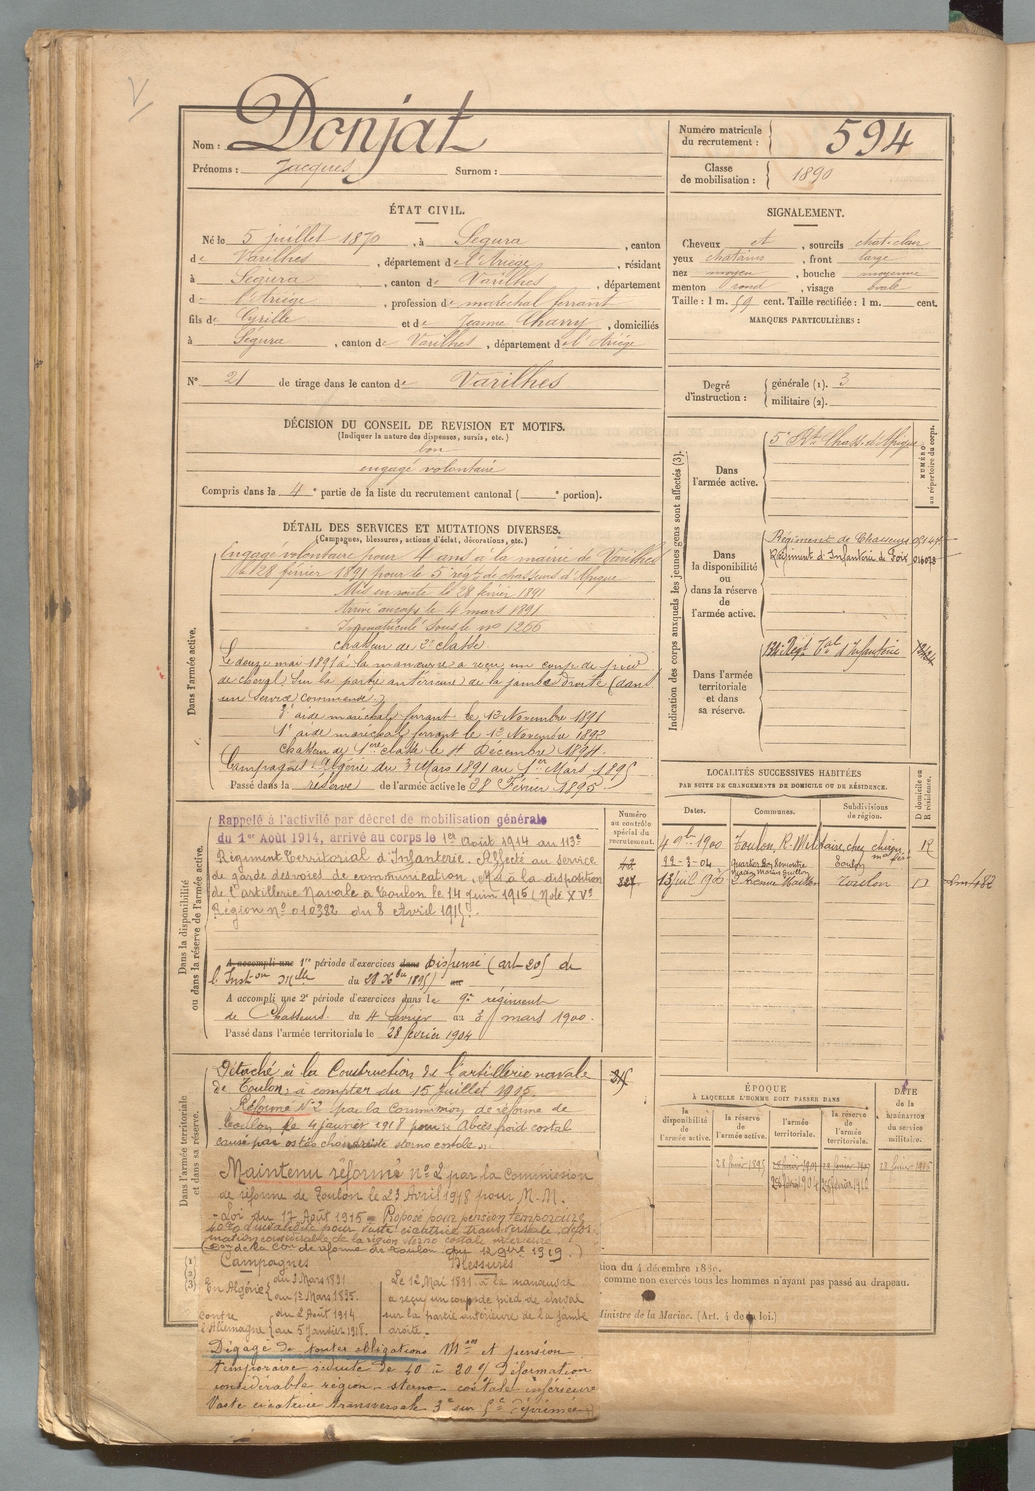 Donjat
Nom :
Prénoms : Jacques Surnom :
Numéro matricule du recrutement : 594
Classe de mobilisation : 1890
ÉTAT CIVIL.
Né le 5 juillet 1870, à Ségura, canton
de Varilhes, département de l'Ariège, résidant
à Ségura, canton de Varilhes, département
d l'Ariège, profession de maréchal ferrant
fils de Cyrille et de Jeanne Charry, domiciliés
à Ségura, canton de Varilhes, département de l'Ariège
N° 21 de tirage dans le canton de Varilhes
SIGNALEMENT.
Cheveux et, sourcils chat-clair
yeux chatains, front large
nez moyen, bouche moyenne
menton rond, visage ovale
Taille : 1 m. 59 cent. Taille rectifiée : 1 m. cent.
MARQUES PARTICULIÈRES :
Degré d'instruction : générale (1). 3
militaire (2).
DÉCISION DU CONSEIL DE REVISION ET MOTIFS.
(Indiquer la nature des dispenses, sursis, etc.)
bon
engagé volontaire
Compris dans la 4e partie de la liste du recrutement cantonal ( e portion).
DÉTAIL DES SERVICES ET MUTATIONS DIVERSES.
(Campagnes, blessures, actions d'éclat, décorations, etc.)
Dans l'armée active.
Engagé volontaire pour 4 ans à la mairie de Varilhes
le 28 février 1891 pour le 5e régt de chasseurs d'Afrique
Mis en route le 28 février 1891
Arrivé au corps le 4 mars 1891
Immatriculé sous le no 1266
chasseur de 2e classe
Le douze mai 1891 à la manœuvre a reçu un coup de pied
de cheval sur la partie antérieure de la jambe droite (dans
un service commandé.)
2e aide maréchal ferrant le 13 Novembre 1891
1er aide maréchal ferrant le 13 Novembre 1892
chasseur de 1ère classe le 4 Décembre 1894.
Campagnes : Algérie du 3 Mars 1891 au 1er Mars 1895
Passé dans la réserve de l'armée active le 28 Février 1895
Indication des corps auxquels les jeunes gens sont affectés (3).
NUMÉRO au répertoire du corps.
Dans l'armée active.
5e Rt Chass. d'Afrique
Dans la disponibilité ou dans la réserve de l'armée active.
Régiment de Chasseurs
Régiment d'Infanterie de Foix
Dans l'armée territoriale et dans sa réserve.
Regt tal d'Infanterie
LOCALITÉS SUCCESSIVES HABITÉES
PAR SUITE DE CHANGEMENTS DE DOMICILE OU DE RÉSIDENCE.
Dates. Communes. Subdivisions de région. D domicile ou R résidence.
Numéro au contrôle spécial du recrutement.
4 9bre 1900 Toulon, R. Militaire, chez R
22-3-04 Toulon
13 juil 1906 Toulon D
Dans la disponibilité ou dans la réserve de l'armée active.
Rappelé à l'activité par décret de mobilisation générale
du 1er Août 1914, arrivé au corps le 1er Août 1914 au 113e
Régiment Territorial d'Infanterie. Affecté au service
de garde des voies de communication, Mis à la disposition
de l'artillerie Navale à Toulon le 14 juin 1915 (Note XVe
Région n° 010382 du 8 Avril 1915).
A accompli une 1re période d'exercices dans Dispensé (art 205 de
l'Inston Mlle du 28 Xbre 1895) au
A accompli une 2e période d'exercices dans le 9e régiment
de Chasseurs. du 4 février au 3 mars 1900.
Passé dans l'armée territoriale le 28 février 1904
Dans l'armée territoriale et dans sa réserve.
Détaché à la Construction de l'artillerie navale
de Toulon, à compter du 15 Juillet 1915.
Réformé N° 2 par la commission de réforme de
Toulon le 4 janvier 1918 pour « Abcès froid costal
causé par ostéo chondrite sterno costale ».
ÉPOQUE
À LAQUELLE L'HOMME DOIT PASSER DANS
la disponibilité de l'armée active. la réserve de l'armée active. l'armée territoriale. la réserve de l'armée territoriale.
DATE de la LIBÉRATION du service militaire.
28 février 1895
28 février 1904 28 février 1910
Maintenu réformé n° 2 par la Commission
de réforme de Toulon le 23 Avril 1918 pour M.M.
- Loi du 17 Août 1915 = Proposé pour pension temporaire
40% d'invalidité pour vaste cicatrice transversale, défor-
mation considérable de la région sterno costale inférieure
(Don de la Con de réforme de Toulon du 12 9bre 1919.)
Campagnes
En Algérie du 3 Mars 1891
au 1er Mars 1895.
Contre l'Allemagne du 2 Août 1914
au 5 Janvier 1918.
Blessures
Le 12 Mai 1891 à la manœuvre
a reçu un coup de pied de cheval
sur la partie antérieure de la jambe
droite.
Dégagé de toutes obligations Mres et pension
temporaire réduite de 40 à 20% Déformation
considérable région sterno-costale inférieure
Vaste cicatrice transversale 3e sur 5e déprimée
tion du 4 décembre 1889.
comme non exercés tous les hommes n'ayant pas passé au drapeau.
Ministre de la Marine. (Art. 4 de la loi.)